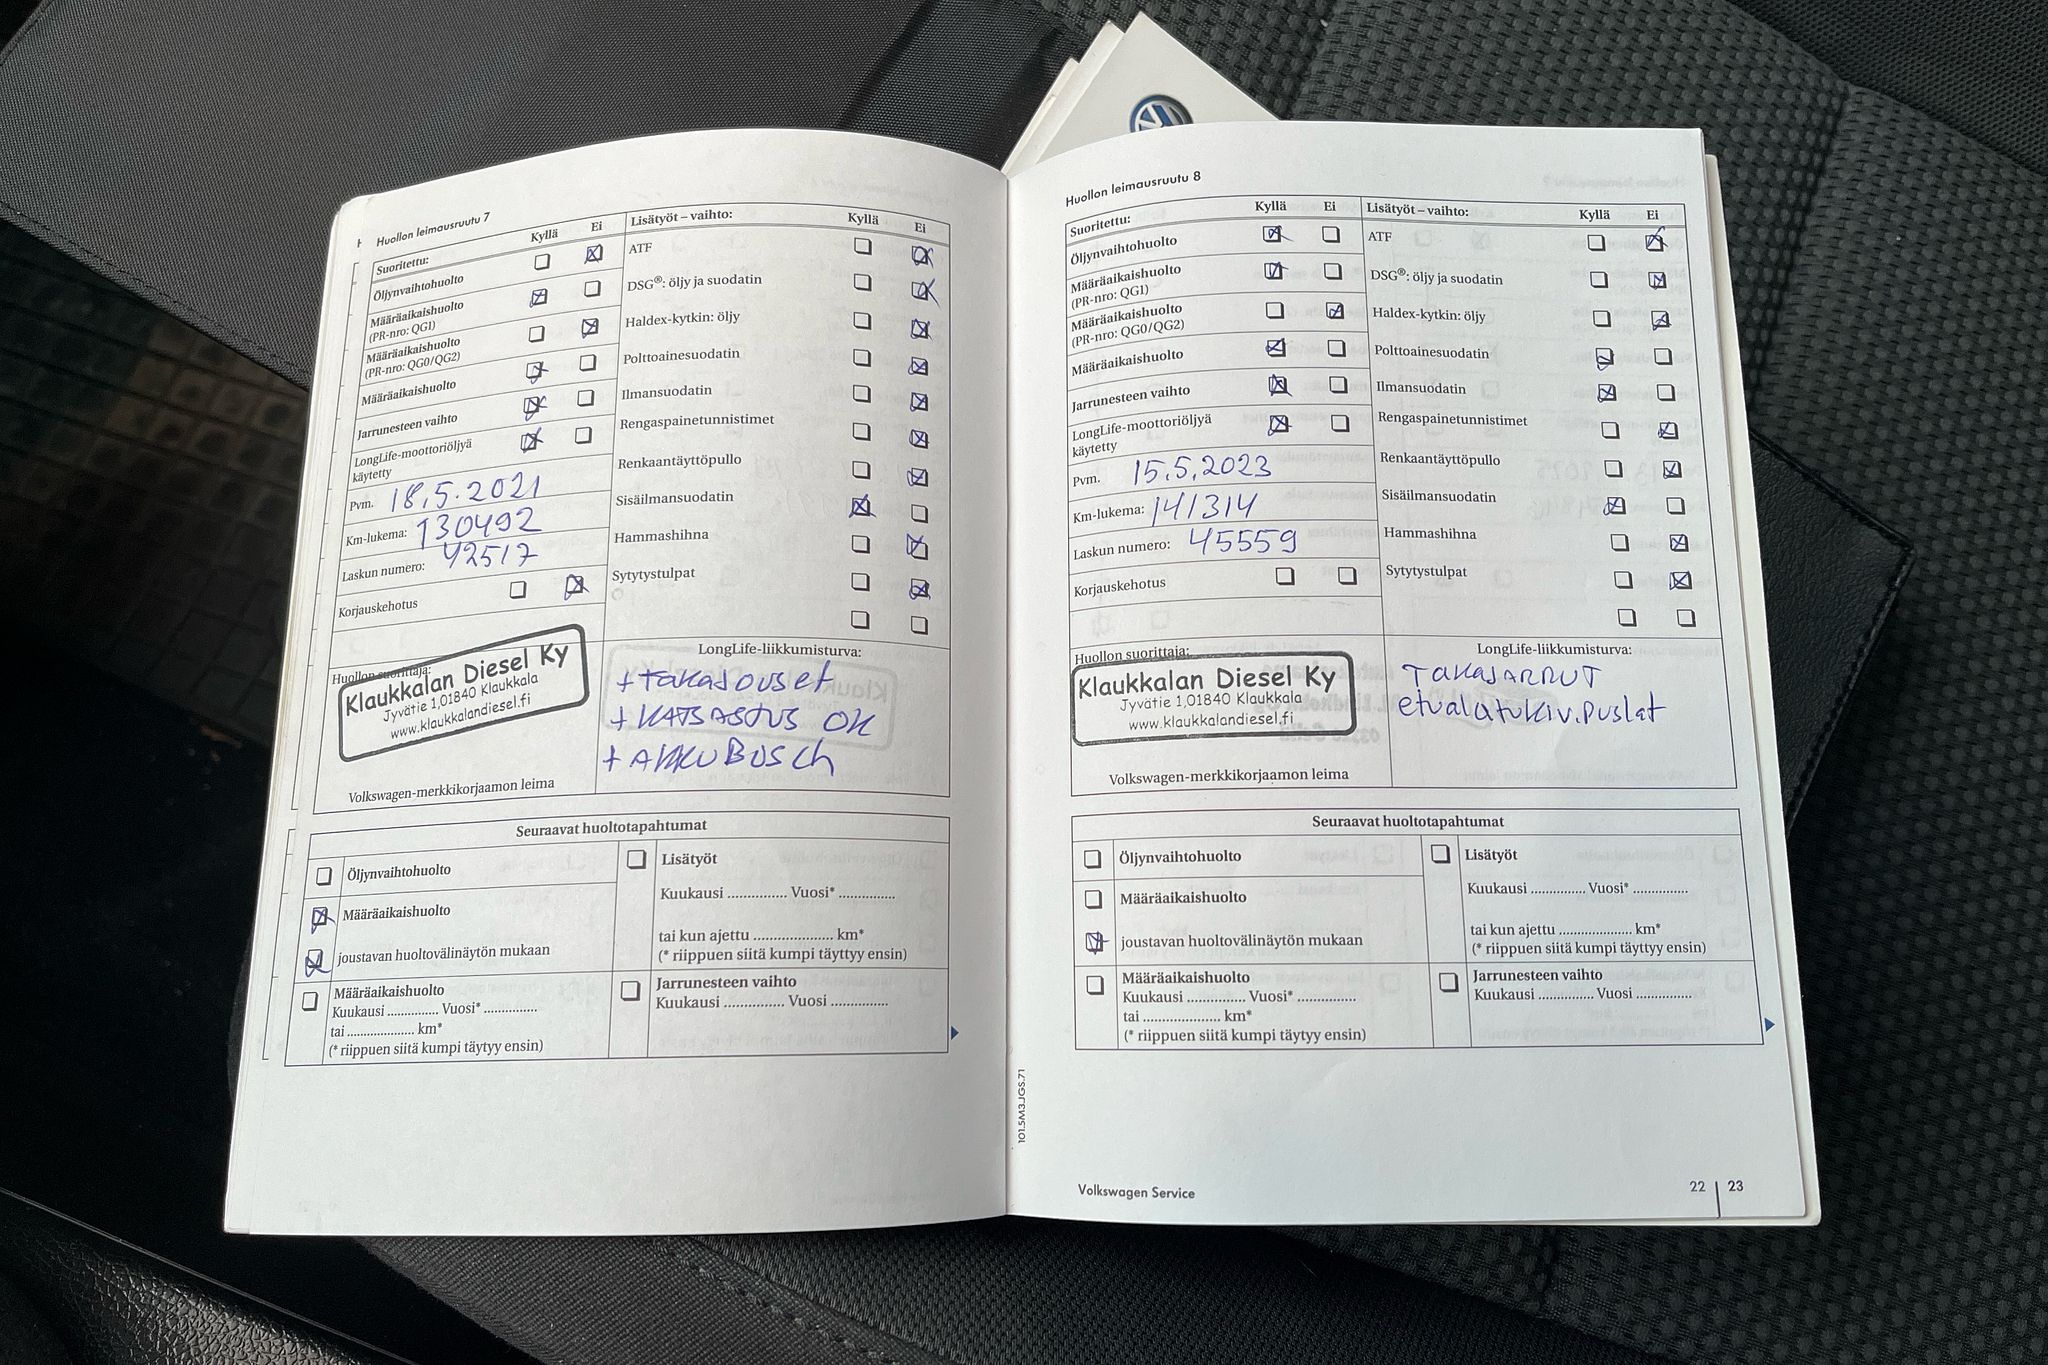 Huollon leimausruutu 7
Suoritettu: Kyllä Ei
Öljynvaihtohuolto
Määräaikaishuolto
(PR-nro: QG1)
Määräaikaishuolto
(PR-nro: QG0/QG2)
Määräaikaishuolto
Jarrunesteen vaihto
LongLife-moottoriöljyä
käytetty
Pvm. 18.5.2021
Km-lukema: 130492
Laskun numero: 42517
Korjauskehotus
Huollon suorittaja:
Klaukkalan Diesel Ky
Jyvätie 1,01840 Klaukkala
www.klaukkalandiesel.fi
Volkswagen-merkkikorjaamon leima
Lisätyöt – vaihto: Kyllä Ei
ATF
DSG®: öljy ja suodatin
Haldex-kytkin: öljy
Polttoainesuodatin
Ilmansuodatin
Rengaspainetunnistimet
Renkaantäyttöpullo
Sisäilmansuodatin
Hammashihna
Sytytystulpat
LongLife-liikkumisturva:
+ TAKAJOUSET
+ KATSASTUS OK
+ AKKU BOSCH
Seuraavat huoltotapahtumat
Öljynvaihtohuolto
Määräaikaishuolto
joustavan huoltovälinäytön mukaan
Määräaikaishuolto
Kuukausi .............. Vuosi* ..............
tai .................... km*
(* riippuen siitä kumpi täytyy ensin)
Lisätyöt
Kuukausi .............. Vuosi* ..............
tai kun ajettu .................... km*
(* riippuen siitä kumpi täyttyy ensin)
Jarrunesteen vaihto
Kuukausi .............. Vuosi ..............
101.5M3.JGS.71
Huollon leimausruutu 8
Suoritettu: Kyllä Ei
Öljynvaihtohuolto
Määräaikaishuolto
(PR-nro: QG1)
Määräaikaishuolto
(PR-nro: QG0/QG2)
Määräaikaishuolto
Jarrunesteen vaihto
LongLife-moottoriöljyä
käytetty
Pvm. 15.5.2023
Km-lukema: 141314
Laskun numero: 45559
Korjauskehotus
Huollon suorittaja:
Klaukkalan Diesel Ky
Jyvätie 1,01840 Klaukkala
www.klaukkalandiesel.fi
Volkswagen-merkkikorjaamon leima
Lisätyöt – vaihto: Kyllä Ei
ATF
DSG®: öljy ja suodatin
Haldex-kytkin: öljy
Polttoainesuodatin
Ilmansuodatin
Rengaspainetunnistimet
Renkaantäyttöpullo
Sisäilmansuodatin
Hammashihna
Sytytystulpat
LongLife-liikkumisturva:
TAKAJARRUT
etualatukiv.puslat
Seuraavat huoltotapahtumat
Öljynvaihtohuolto
Määräaikaishuolto
joustavan huoltovälinäytön mukaan
Määräaikaishuolto
Kuukausi .............. Vuosi* ..............
tai .................... km*
(* riippuen siitä kumpi täytyy ensin)
Lisätyöt
Kuukausi .............. Vuosi* ..............
tai kun ajettu .................... km*
(* riippuen siitä kumpi täyttyy ensin)
Jarrunesteen vaihto
Kuukausi .............. Vuosi ..............
Volkswagen Service
22 | 23